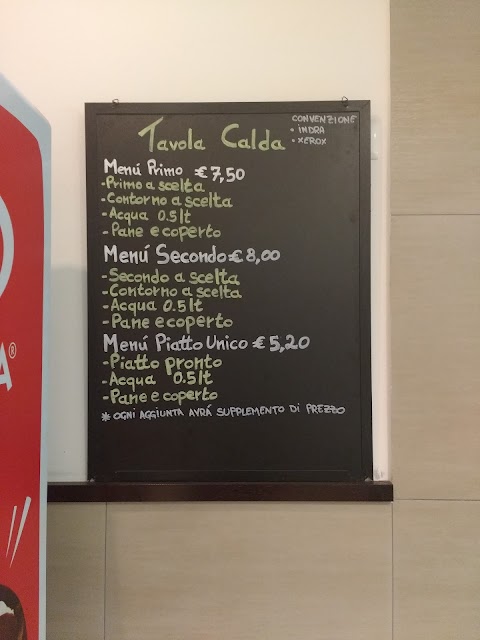 Tavola Calda
CONVENZIONE
• INDRA
• XEROX
Menú Primo €7,50
- Primo a scelta
- Contorno a scelta
- Acqua 0.5lt
- Pane e coperto
Menú Secondo €8,00
- Secondo a scelta
- Contorno a scelta
- Acqua 0.5lt
- Pane e coperto
Menú Piatto Unico €5,20
- Piatto pronto
- Acqua 0.5lt
- Pane e coperto
* OGNI AGGIUNTA AVRÁ SUPPLEMENTO DI PREZZO